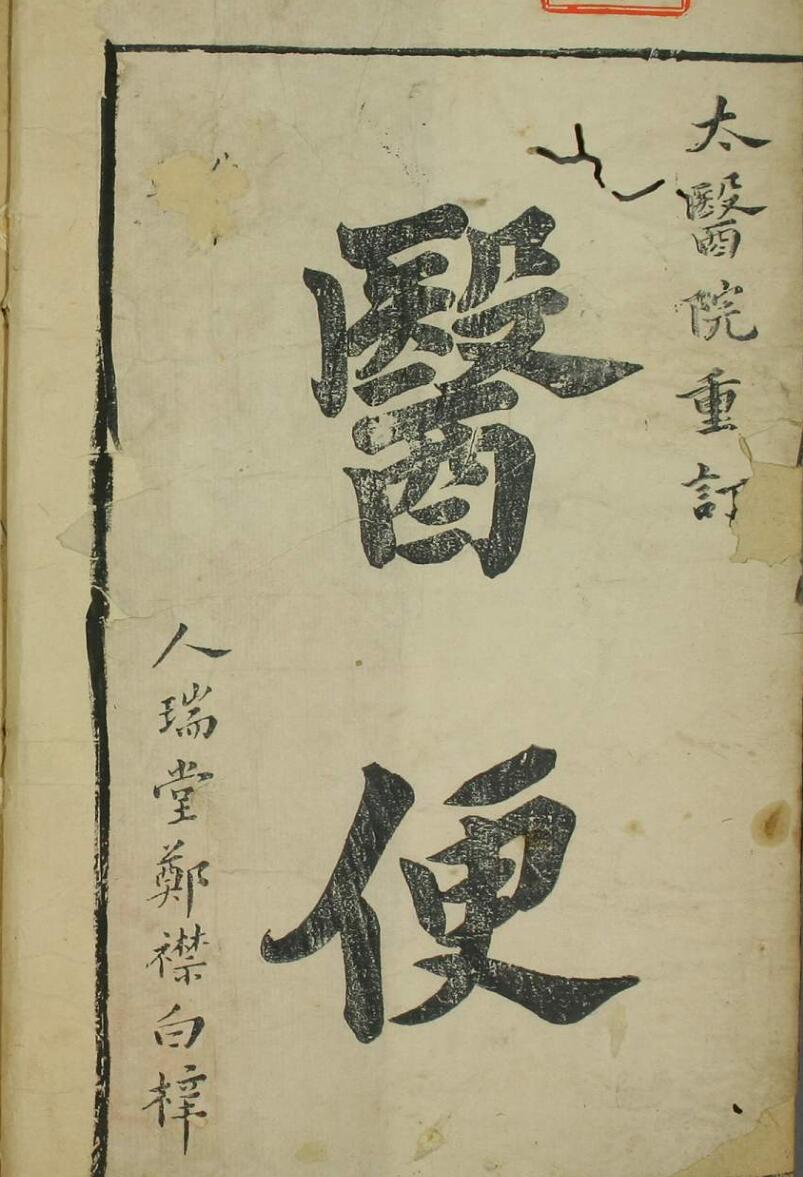 太醫院重訂
醫便
人瑞堂鄭襟白梓